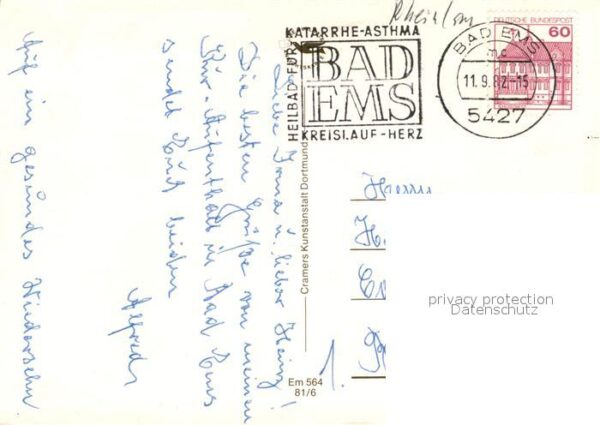 Rheinland
KATARRHE-ASTHMA
HEILBAD FÜR
BAD
EMS
KREISLAUF-HERZ
DEUTSCHE BUNDESPOST
60
BAD EMS
mc
11.9.82-15
5427
Liebe Irma u. lieber Heinz!
Die besten Grüße von meinem
Kur-Aufenthalt in Bad Ems
sendet Euch beiden
Alfred
Auf ein gesundes Wiedersehn
Cramers Kunstanstalt Dortmund
Em 564
81/6
Herrn
H.
1.
privacy protection
Datenschutz